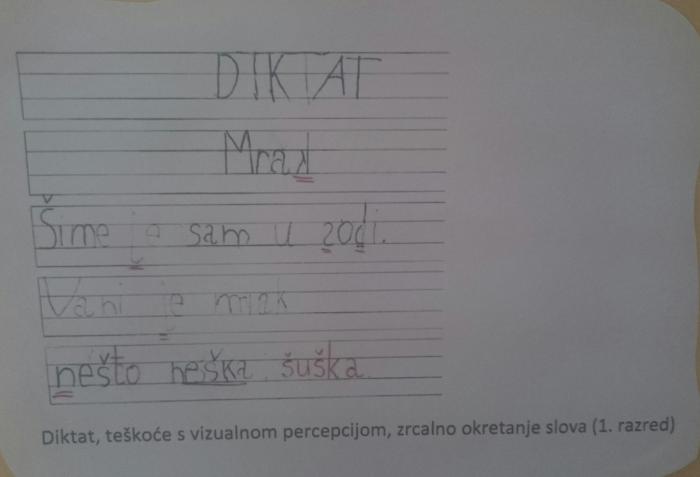 DIKTAT
Mrak
Šime je sam u zodi.
Vani je mrak
nešto neška šuška.
Diktat, teškoće s vizualnom percepcijom, zrcalno okretanje slova (1. razred)